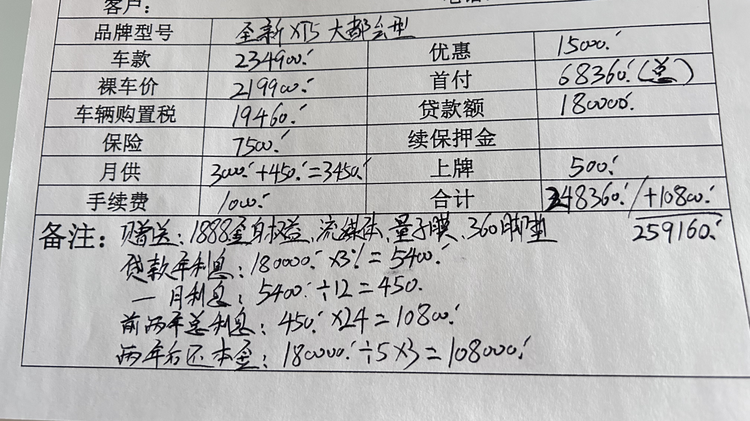 客户：
品牌型号 全新XT5 大都会型
车款 234900. 优惠 15000.
裸车价 219900. 首付 68360.(总)
车辆购置税 19460. 贷款额 180000.
保险 7500. 续保押金
月供 3000.+450.=3450. 上牌 500.
手续费 1000. 合计 248360./+10800.
259160.
备注：赠送：1888全身权益、流媒体、量子膜、360脚垫
贷款年利息：180000.×3%=5400.
一月利息：5400.÷12=450.
前两年总利息：450.×24=10800.
两年后还本金：180000.÷5×3=108000.